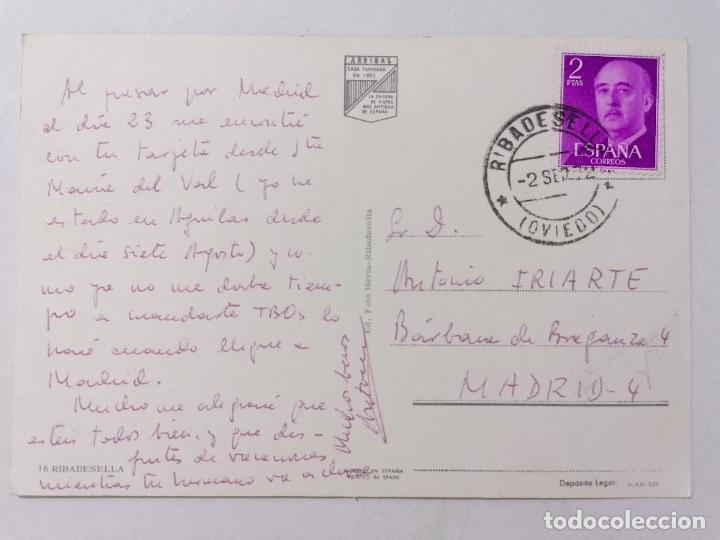 ARRIBAS
CASA FUNDADA
EN 1905
LA EDITORA
DE VISTAS
MAS ANTIGUA
DE ESPAÑA
2
PTAS
ESPAÑA
CORREOS
RIBADESELLA
-2 SE
(OVIEDO)
Al pasar por Madrid
el día 23 me encontré
con tu tarjeta desde
María del Val (yo he
estado en Aguilas desde
el día siete Agosto) y co-
mo ya no me daba tiem-
po a mandarte TBOs lo
haré cuando llegue a
Madrid.
Mucho me alegraré que
esteis todos bien, y que dis-
frutes de vacaciones
mientras tu hermano va a clase
Muchos besos
Antonio
Ed. Foto Hevia-Ribadesella
Sr. D.
Antonio IRIARTE
Bárbara de Braganza 4
MADRID-4
16 RIBADESELLA
EN ESPAÑA
PRINTED IN SPAIN
Depósito Legal:
todocoleccion
todocoleccion.net